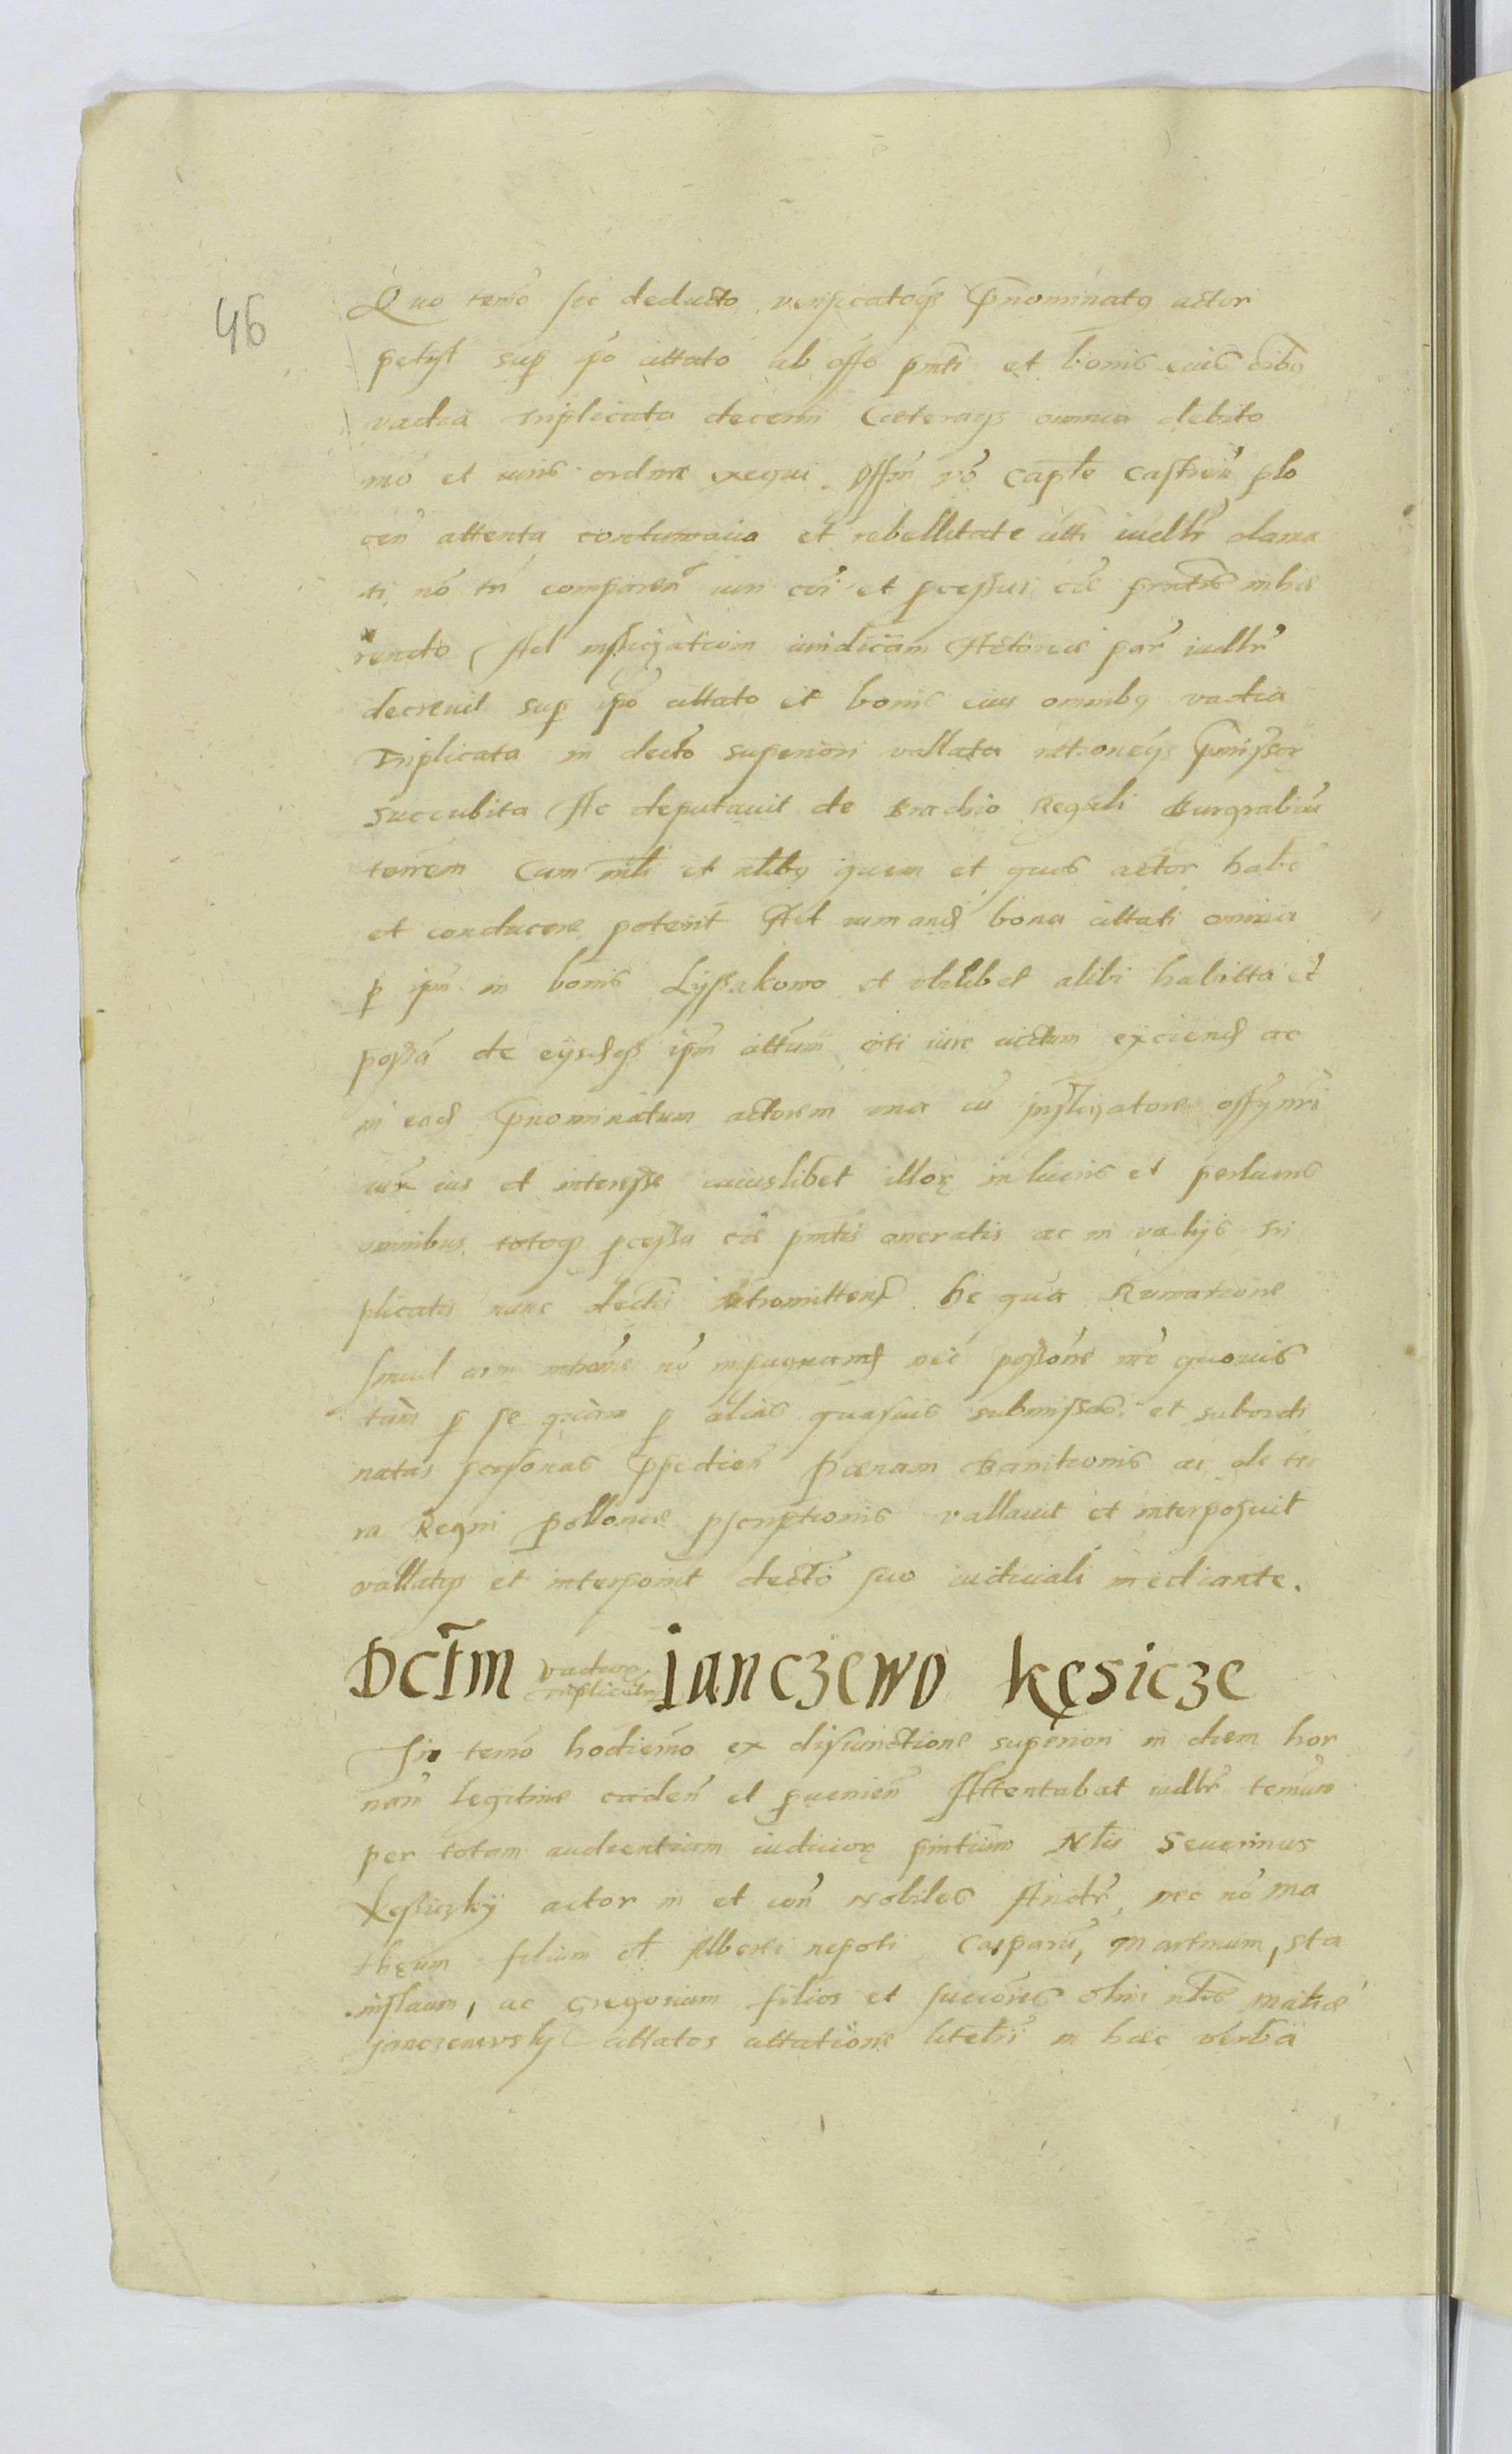 46
Quo termo sic deducto verificatoqȝ Pnominatꝰ actor
petyt sup ipo cittato ab offo pnti et bonis eius oibꝰ
vadia Triplicata decerni Cæteraqȝ omnia debito
mō et iuris ordine exequi Offm vō Caplē Castreñ plo
ceñ attenta contumacia et rebellitate citti iudlr clama
ti nō tn compareñ iuri cōi et pcessui cæ pntis inhæ
rendo Ad instigationem iuridicam Actoreæ par iudlr
decrevit sup ipo cittato et bonis eius omnibꝰ vadia
Triplicata in decto superiori vallata rationeqȝ pmissorꝝ
succubita Ac deputavit de Brachio Regali Burgrabiū
terrem Cum mli et nlibꝰ quem et quos actor habē
et conducere poterit Ad rumand bona cittati omnia
p ipm in bonis Lyssakowo et ubilibet alibi habitta et
possa de eysdqȝ ipm cittum oti iure victum exciend ac
in eod Pnominatum actorem una cū instigatore offy nri
iux ius et interesse cuiuslibet illorꝝ in lucris et perlucris
omnibus totoqȝ pcessu cæ pntis oneratis ac in vadijs tri
plicatis nunc dectis intromittend De qua Rumatione
simul cum intrōne nō impugnand nec possōne mō quovis
tam p se quam p alias quasvis submissas et subordi
natas personas Ppedieñ Pœnam Banitionis ac de ter
ra Regni Polloniæ pscriptionis vallavit et interposuit
vallatqȝ et interponit decto suo iudiciali mediante.
Dctm vadiorꝝ triplicatorꝝ Janczewo Kęsicze
In termo hodierno ex disiunctione superiori in diem hor
nam legitime cadeñ et pvenieñ Attentabat iudlr termum
per totam audientiam iudiciorꝝ pntium Nlis Severinus
Kęsiczky actor in et coñ Nobiles Andr, nec nō Ma
thęum filium et Alberti nepoti Casparū, Martinum, Sta
nislaum, ac Gregorium filios et succōres olim nlis Mathiæ
Janczewsky cittatos cittatione literli in hæc verba